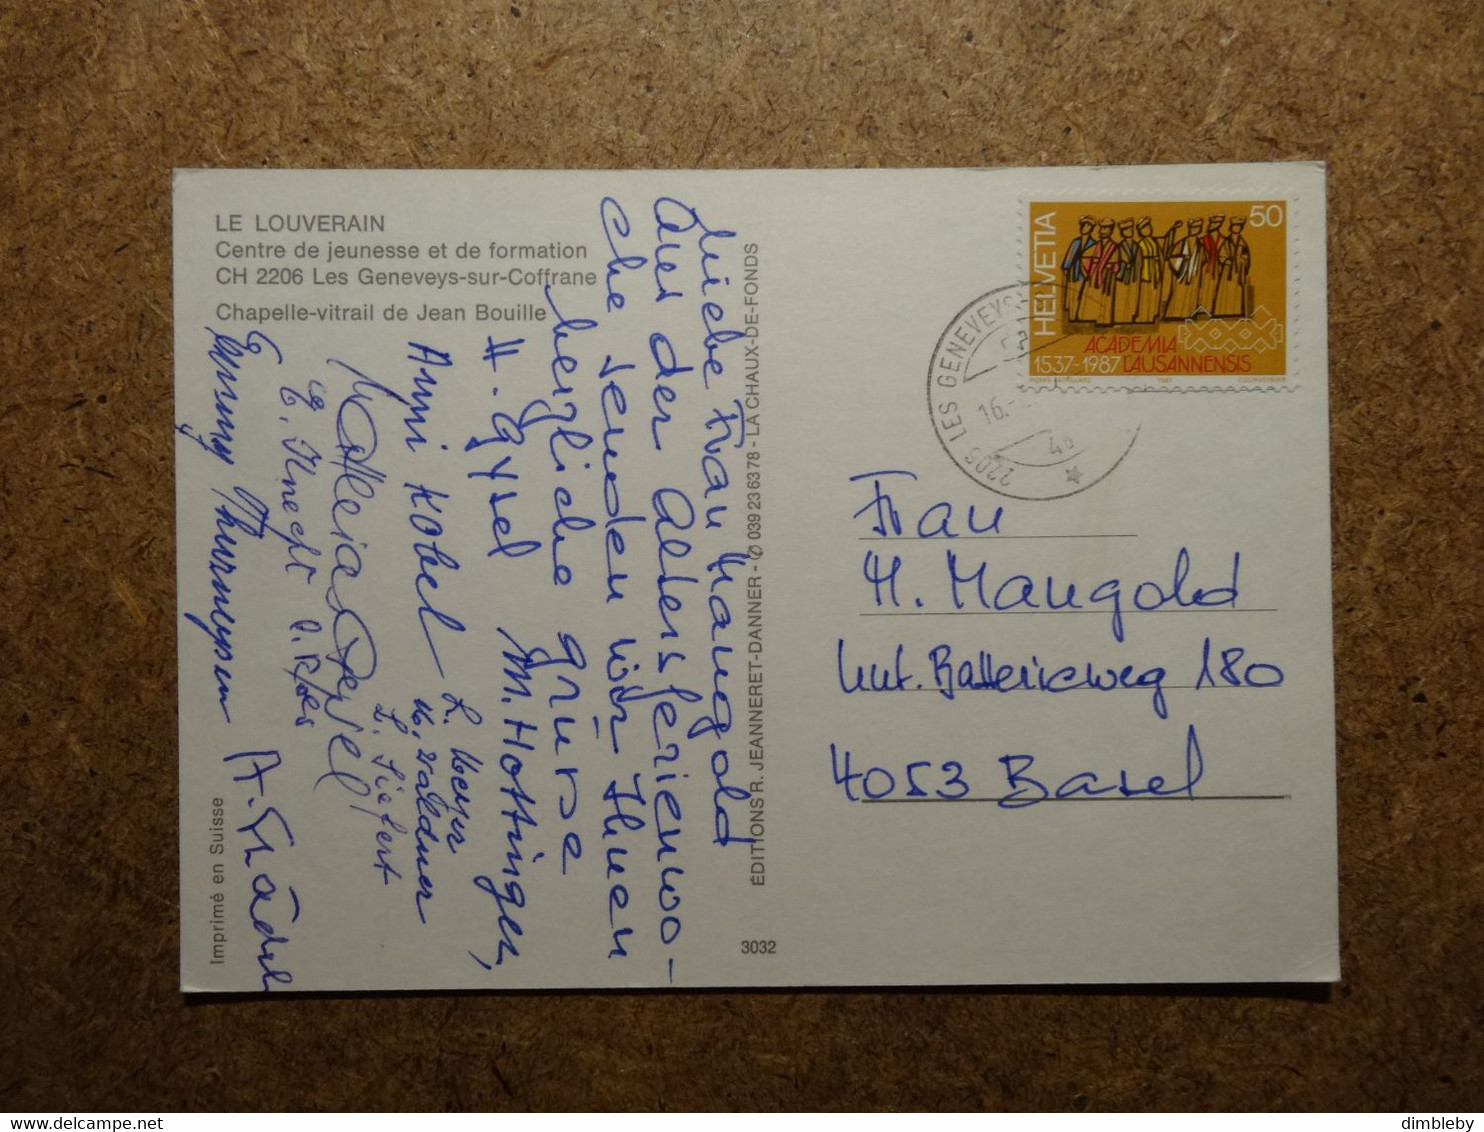 LE LOUVERAIN
Centre de jeunesse et de formation
CH 2206 Les Geneveys-sur-Coffrane
Chapelle-vitrail de Jean Bouille
Liebe Frau Mangold
Aus der Altersferienwo-
che senden wir Ihnen
herzliche Grüsse
H. Gysel M. Hottinger,
Anni Kobel L. Meyer
W. Waldner
L. Siefert
E. Knecht
Thurneysen A. Städel
Imprimé en Suisse
ÉDITIONS R. JEANNERET-DANNER - ✆ 039 23 63 78 - LA CHAUX-DE-FONDS
3032
HELVETIA
50
ACADEMIA
1537-1987 LAUSANNENSIS
1987
COURVOISIER
2206 LES GENEVEYS
16.
Frau
M. Mangold
Unt. Batterieweg 180
4053 Basel
dimbleby